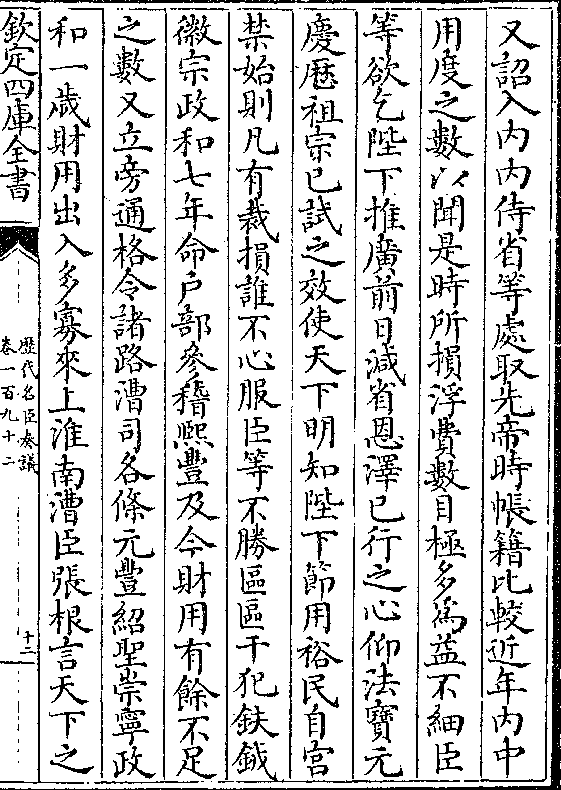 又詔入内内侍省等處取先帝時帳籍比較近年内中
用度之數以聞是時所損浮費數目極多為益不細臣
等欲乞陛下推廣前日減省恩澤已行之心仰法寶元
慶歴祖宗已試之效使天下明知陛下節用裕民自宫
禁始則凡有裁損誰不心服臣等不勝區區干犯鈇鉞
徽宗政和七年命户部參稽熈豐及今財用有餘不足
之數又立旁通格令諸路漕司各條元豐紹聖崇寧政
和一歲財用出入多寡來上淮南漕臣張根言天下之
欽定四庫全書
歴代名臣奏議
卷一百九十二
十二